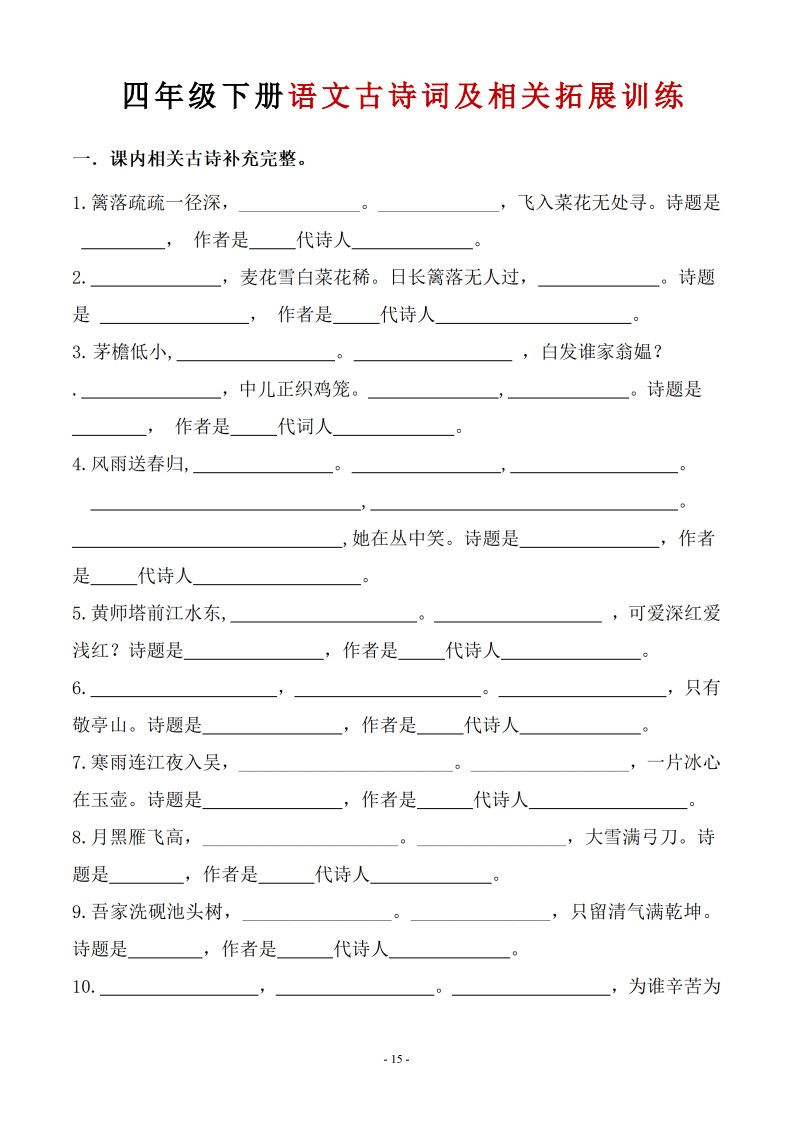 四年级下册语文古诗词及相关拓展训练
一．课内相关古诗补充完整。
1.篱落疏疏一径深，_____________。_____________，飞入菜花无处寻。诗题是
_________， 作者是_____代诗人_____________。
2.______________，麦花雪白菜花稀。日长篱落无人过，_____________。诗题
是 ________________， 作者是_____代诗人_____________________。
3. 茅檐低小,_________________。_________________ ，白发谁家翁媪？
.______________，中儿正织鸡笼。______________,_____________。诗题是
________， 作者是_____代词人_____________。
4.风雨送春归,_______________。________________,__________________。
_____________________________,_________________________________。
_____________________________,她在丛中笑。诗题是_______________，作者
是_____代诗人__________________。
5.黄师塔前江水东,____________________。__________________ ，可爱深红爱
浅红？诗题是_______________，作者是_____代诗人_______________。
6.____________________，____________________。__________________，只有
敬亭山。诗题是_______________，作者是_____代诗人_____________。
7.寒雨连江夜入吴，_______________________。_________________，一片冰心
在玉壶。诗题是_______________，作者是______代诗人_________________。
8.月黑雁飞高，_____________________。________________，大雪满弓刀。诗
题是________，作者是______代诗人_____________。
9.吾家洗砚池头树，________________。_______________，只留清气满乾坤。
诗题是________，作者是______代诗人_____________。
10._________________，_________________。_________________，为谁辛苦为
- 15 -